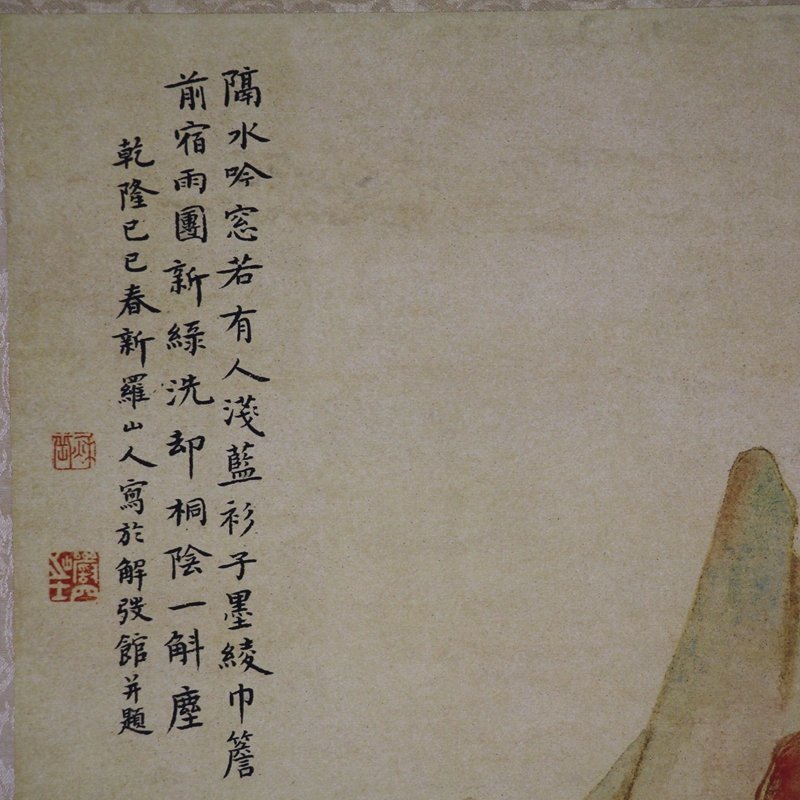 隔水吟窓若有人淺藍衫子墨綾巾簷
前宿雨團新綠洗却桐陰一斛塵
乾隆己巳春新羅山人寫於解弢館并題